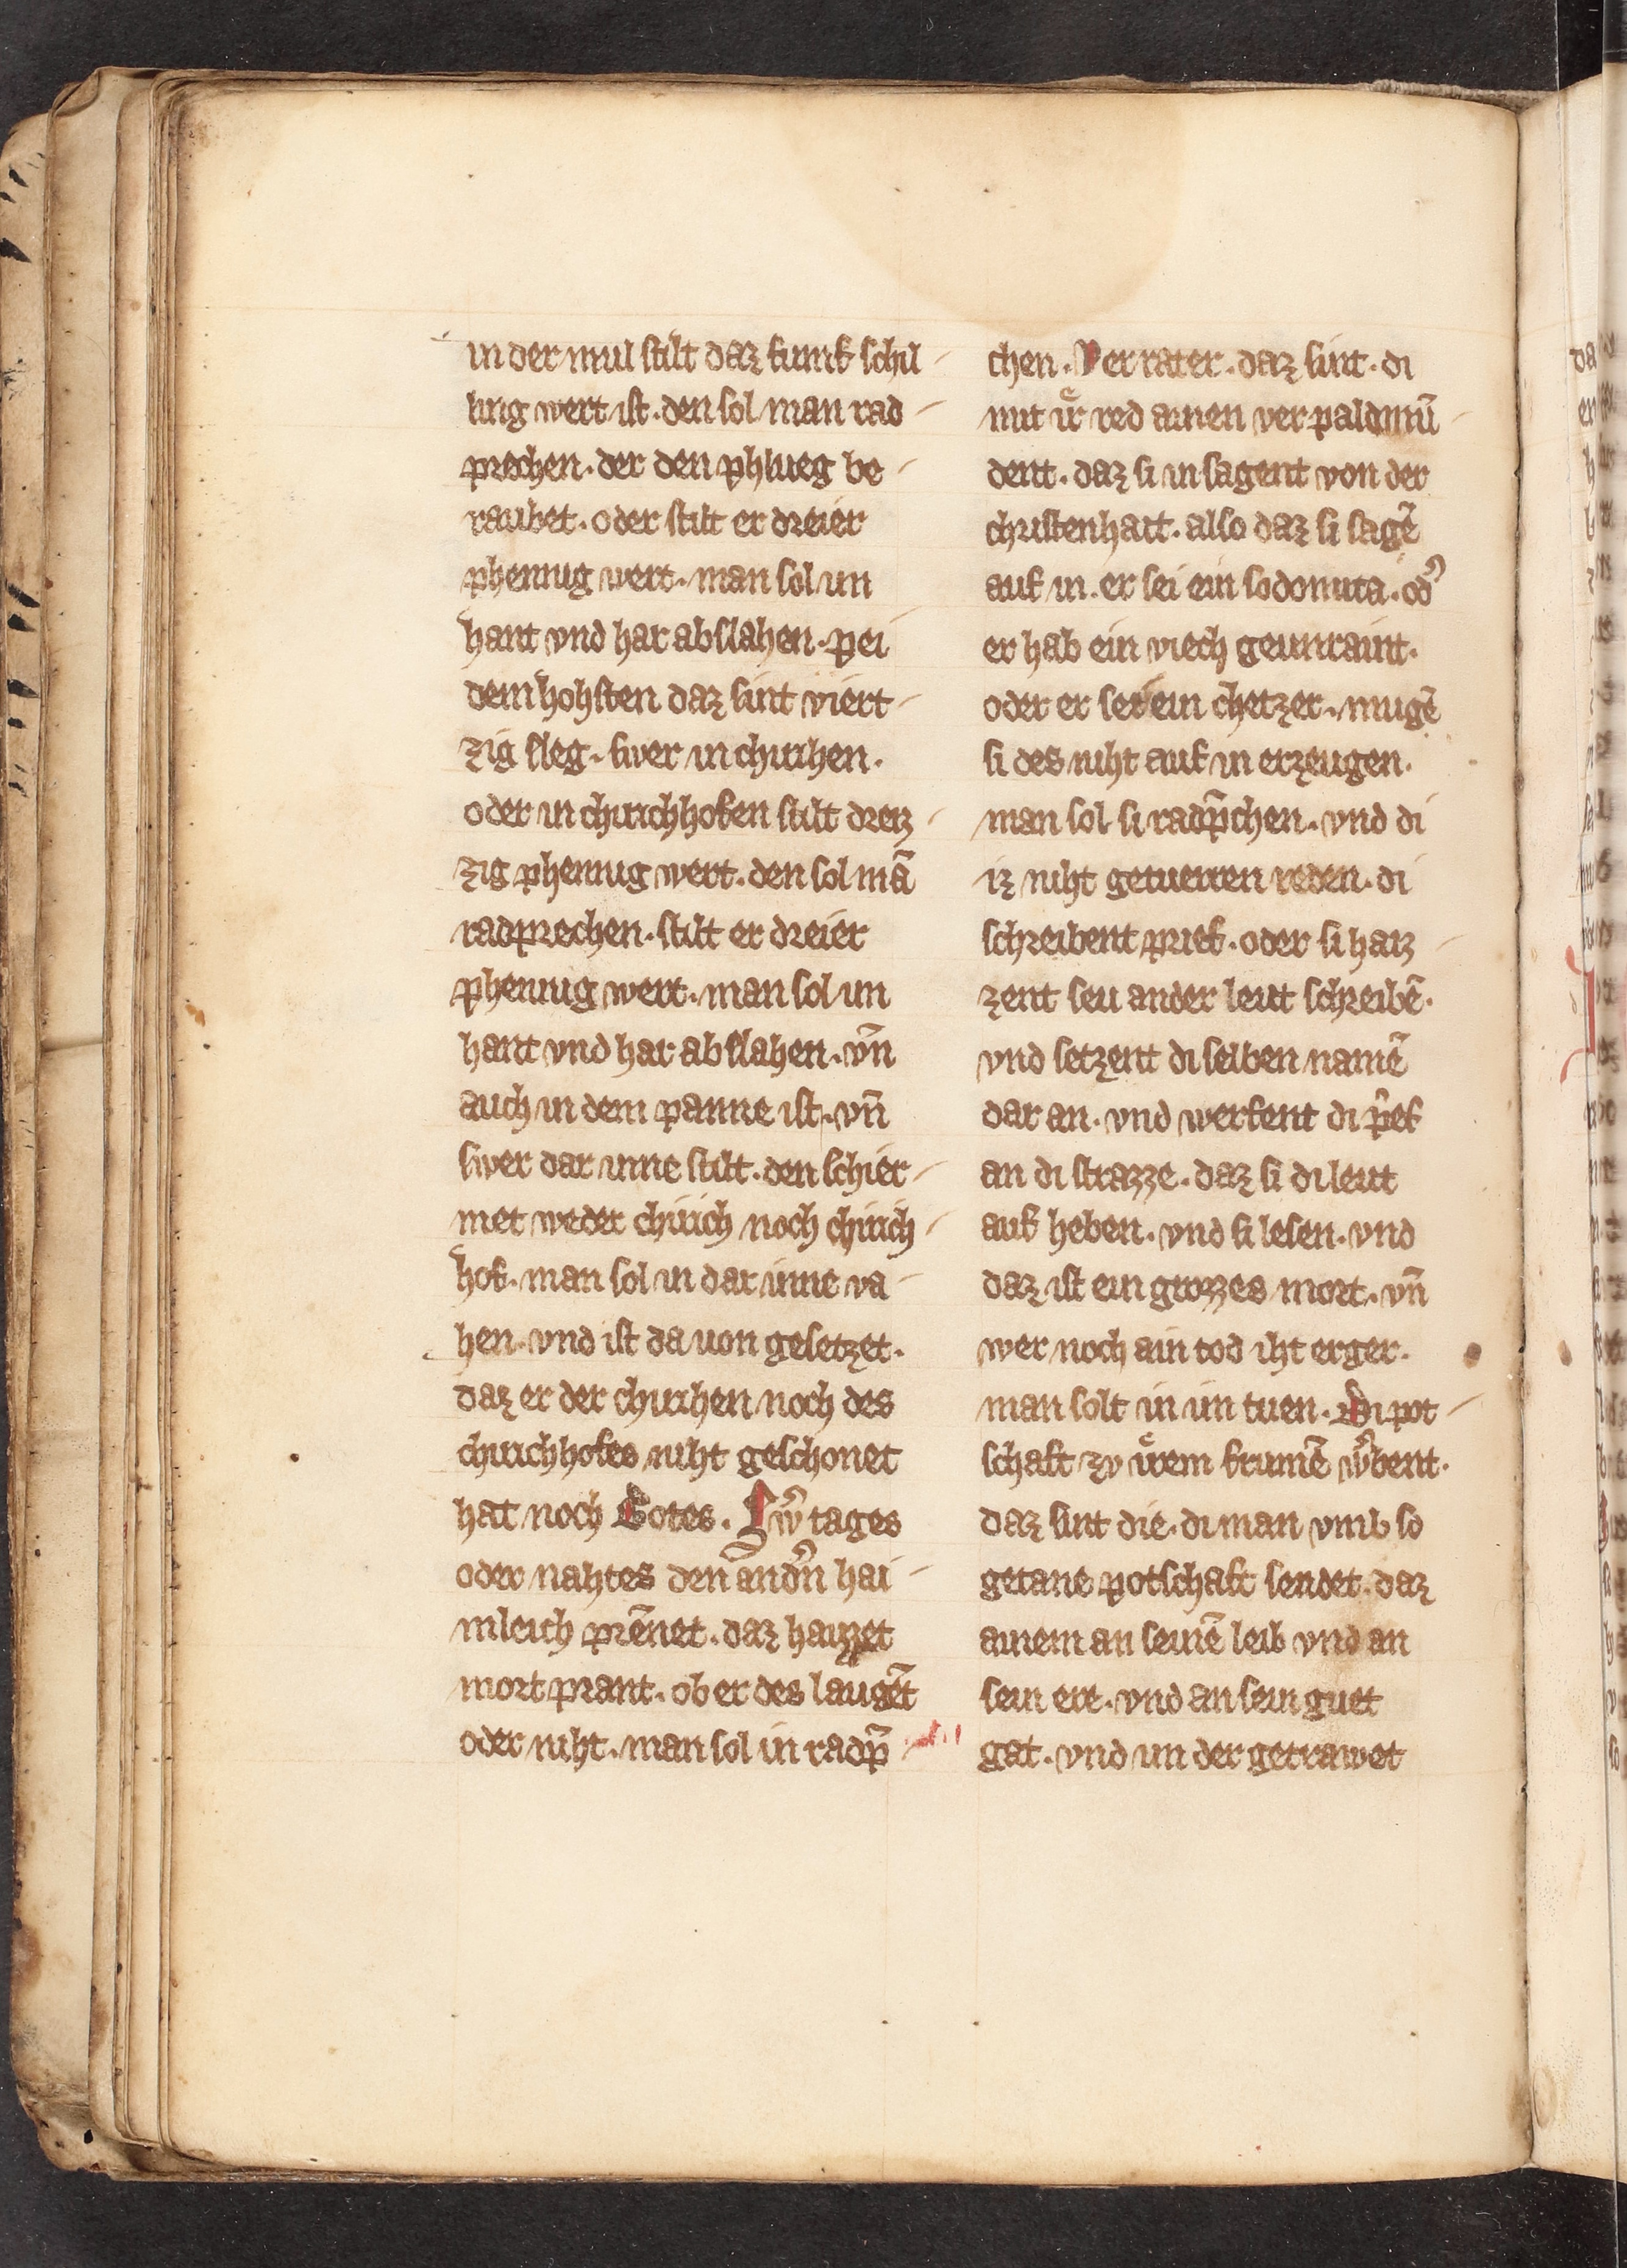 in der mul stilt daz fumf schil-
ling wert ist. den sol man rad-
prechen. der den phlueg be-
raubet. oder stilt er dreier
phennig wert. man sol im
haut vnd har abslahen. pei
dem hohsten daz sint viert-
zig sleg. swer in chirchen.
oder in chirichhofen stilt dreiz-
zig phennig wert. den sol mā
radprechen. stilt er dreier
phennig wert. man sol im
haut vnd har abslahen. vn̄
auch in dem panne ist. vn̄
swer dar inne stilt. den schier-
met weder chirich noch chirich-
hof. man sol in dar inne va-
hen. vnd ist da uon gesetzet.
daz er der chirchen noch des
chirichhofes niht geschonet
hat noch Gotes. Sw̾ tages
oder nahtes den̄ and̾n hai-
mleich prēnet. daz haizzet
mort prant. ob er des laugēt
oder niht. man sol in radp̄-
chen. Verrater. daz sint. di
mit ir̊ red ainen ver paldmū-
dent. daz si in sagent von der
christenhait. also daz si sagē
auf in. er sei ein sodomita. od̾
er hab ein viech geunraint.
oder er sei ein chetzer. mugē
si des niht auf in erzeugen.
man sol si radp̄chen. vnd di
iz niht getuerren reden. di
schreibent prief. oder si haiz-
zent seu ander leut schreibē.
vnd setzent di selben namē
dar an. vnd werfent di p̄ef
an di strazze. daz si di leut
auf heben. vnd si lesen. vnd
daz ist ein grozzes mort. vn̄
wer noch ain tod iht erger.
man solt in im tuen. Di pot-
schaft zv ůrem frumē w̾bent.
daz sint die. di man vmb so
getane potschaft sendet. daz
ainem an seinē leib vnd an
sein ere. vnd an sein guet
gat. vnd im der getrawet